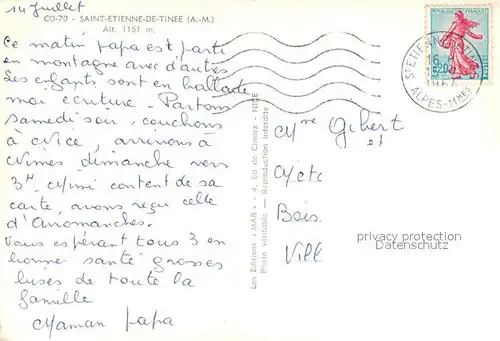 14 Juillet
CO-70 - SAINT-ETIENNE-DE-TINEE (A.-M.)
Alt. 1151 m.
Ce matin papa est parti
en montagne avec d'autres
Les enfants sont en ballade
moi ecriture - Partons
samedi soir, couchons
à Nice, arrivons à
Nimes dimanche vers
3H Mimi content de sa
carte, avons reçu celle
d'Avromanches.
Vous espérant tous 3 en
bonne santé grosses
bises de toute la
famille
Maman papa
Les Editions « MAR » - 4, Bd de Cimiez - NICE
Photo véritable - Reproduction interdite
REPUBLIQUE FRANÇAISE
0,20
POSTES
ST ETIENNE
ALPES-MMES
Mme Gibert
et
Bois
Vill
privacy protection
Datenschutz